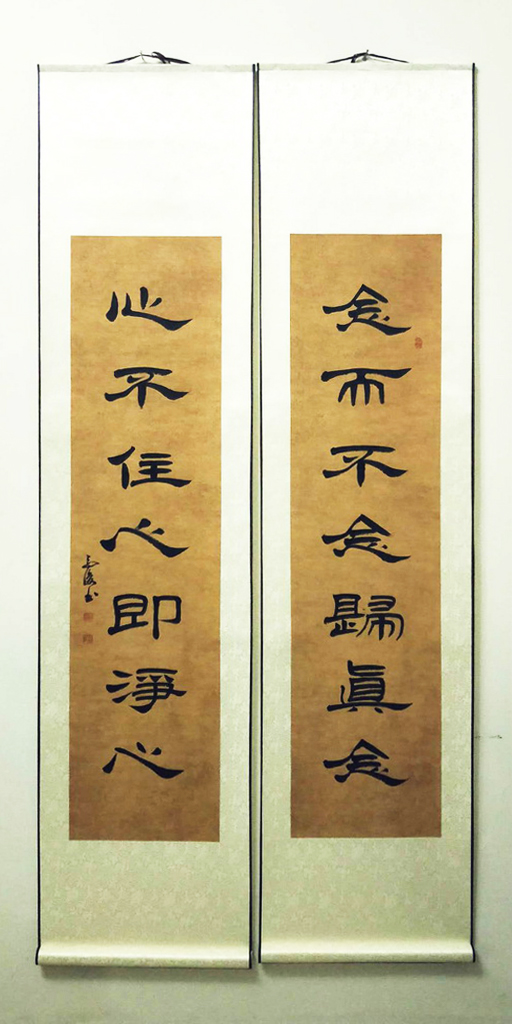 念而不念歸真念
心不住心即淨心